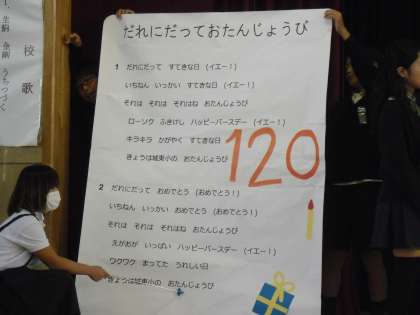 校歌
一、生駒 金剛 うちつづく
だれにだっておたんじょうび
1 だれにだって すてきな日 (イエー!)
いちねん いっかい すてきな日 (イエー!)
それは それは それはね おたんじょうび
ローソク ふきけし ハッピーバースデー (イエー!)
キラキラ かがやく すてきな日
きょうは城東小の おたんじょうび
120
2 だれにだって おめでとう (おめでとう!)
いちねん いっかい おめでとう (おめでとう!)
それは それは それはね おたんじょうび
えがおが いっぱい ハッピーバースデー (イエー!)
ワクワク まってた うれしい日
きょうは城東小の おたんじょうび